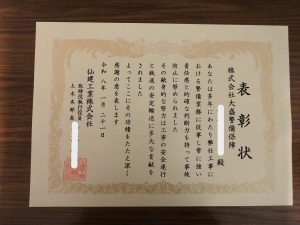 表彰状
株式会社大盛警備保障
殿
あなたは多年にわたり弊社工事に
おける警備業務に従事し常に強い
責任感と的確な判断力を持って事故
防止に努められました
その献身的な努力は工事の安全遂行
と鉄道の安定輸送に多大な貢献を
されました
よってここにその功績をたたえ深く
感謝の意を表します
令和八年一月二十一日
仙建工業株式会社
取締役執行役員
土木本部長